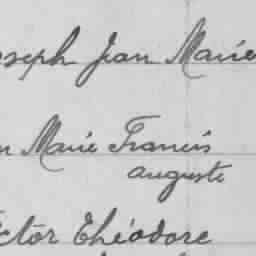 oseph Jean Marie
n Marie Francis
auguste
ctor Théodore